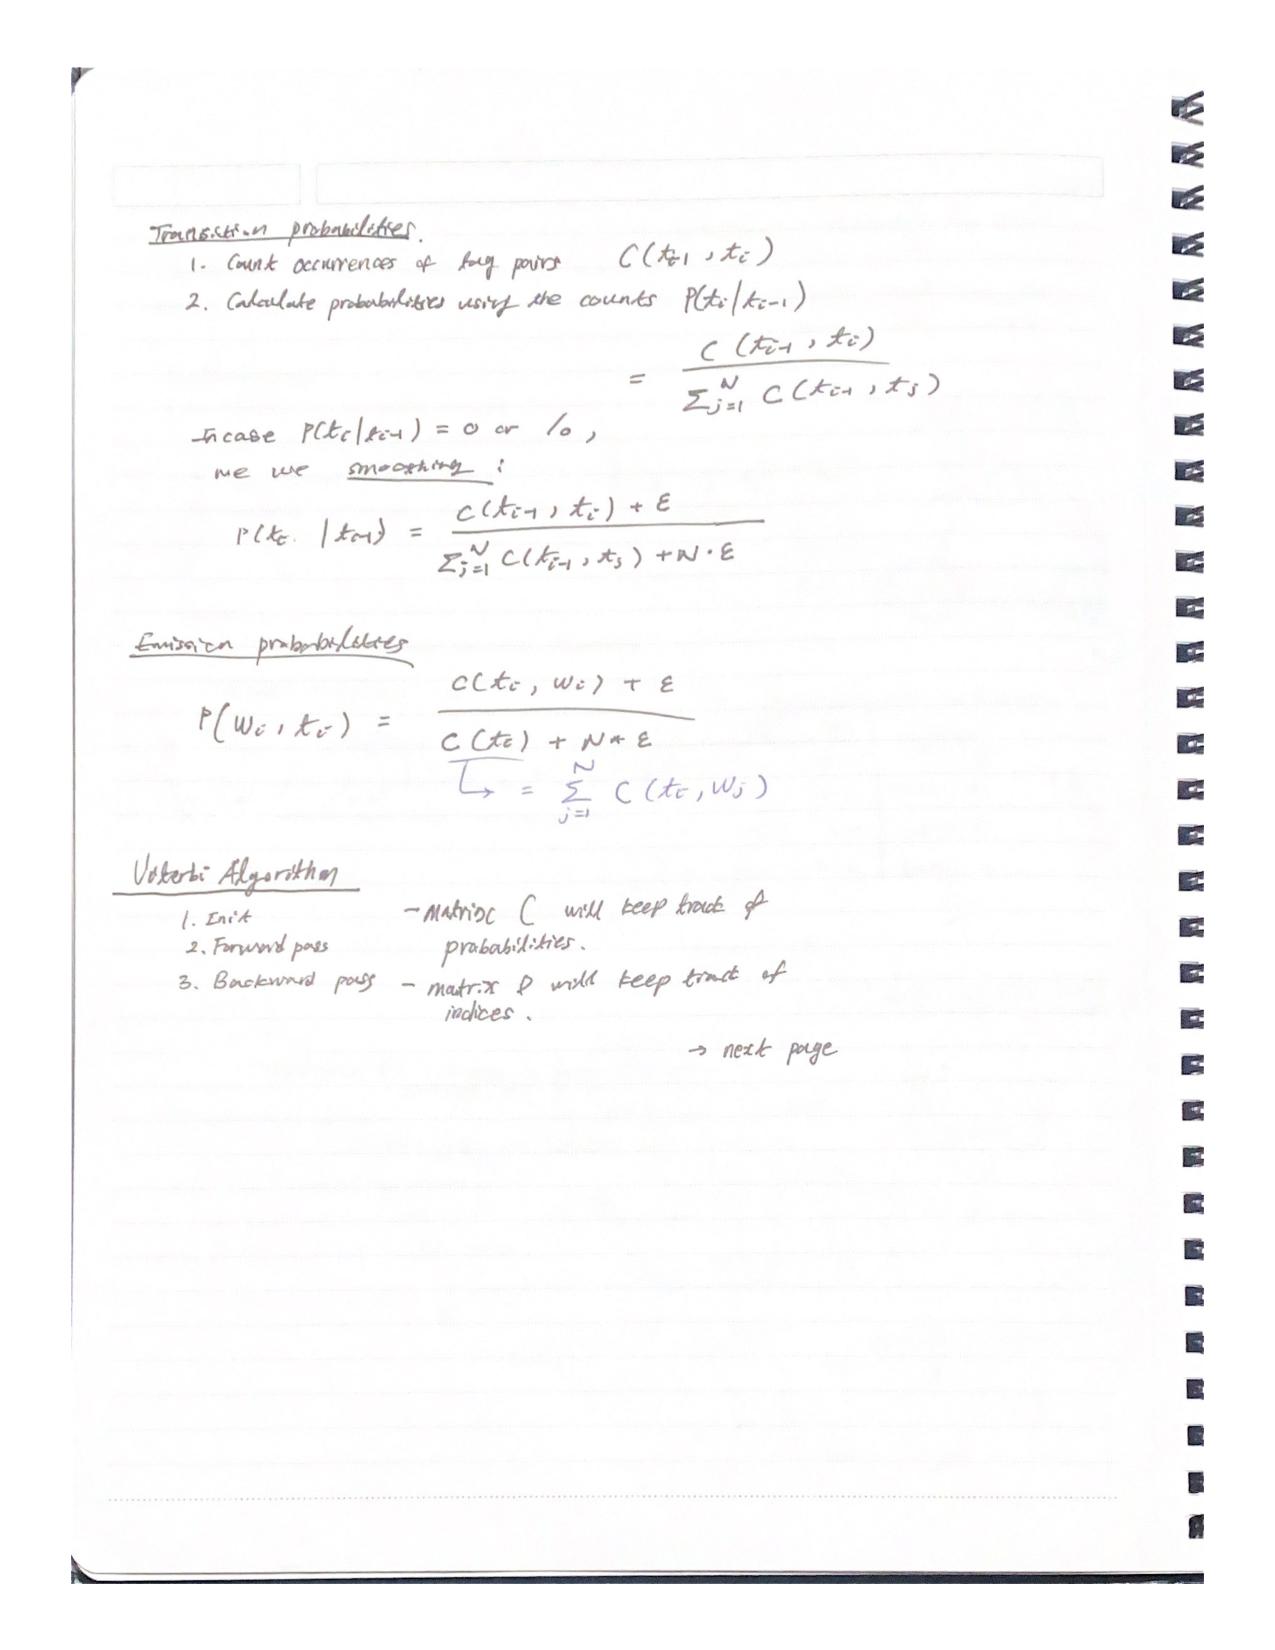 Transition probabilities.
1. Count occurrences of tag pairs C(t_{i-1}, t_i)
2. Calculate probabilities using the counts P(t_i | t_{i-1})
= C(t_{i-1}, t_i) / Σ_{j=1}^{N} C(t_{i-1}, t_j)
In case P(t_i | t_{i-1}) = 0 or /0,
we use smoothing :
P(t_i | t_{i-1}) = C(t_{i-1}, t_i) + ε / Σ_{j=1}^{N} C(t_{i-1}, t_j) + N · ε
Emission probabilities
P(w_i, t_i) = C(t_i, w_i) + ε / C(t_i) + N * ε
↳ = Σ_{j=1}^{N} C(t_i, w_j)
Viterbi Algorithm
1. Init
2. Forward pass
3. Backward pass
- Matrix C will keep track of
probabilities.
- matrix D will keep track of
indices.
→ next page